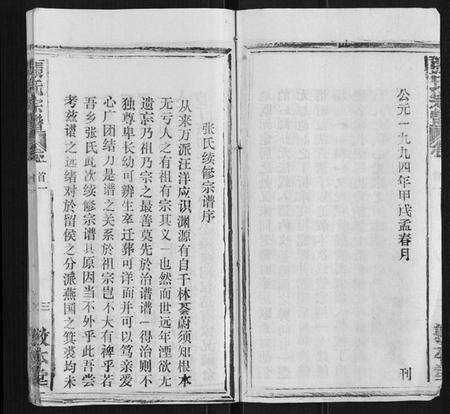 公元一九九四年甲戌孟春月
刊
张氏续修宗谱序
从来万派汪洋应识渊源有自千林荟蔚须知根本
无亏人之有祖有宗其义一也然而世远年湮欲无
遗忘乃祖乃宗之最善莫先於治谱谱一得治则不
独尊卑长幼可辨生卒迁葬可详而并可以笃亲爱
心广团结力是谱之关系於祖宗岂不大有裨乎若
吾乡张氏此次续修宗谱其原因当不外乎此吾尝
考兹谱之远绪对於留侯之分派燕国之箕裘均未
首一
三